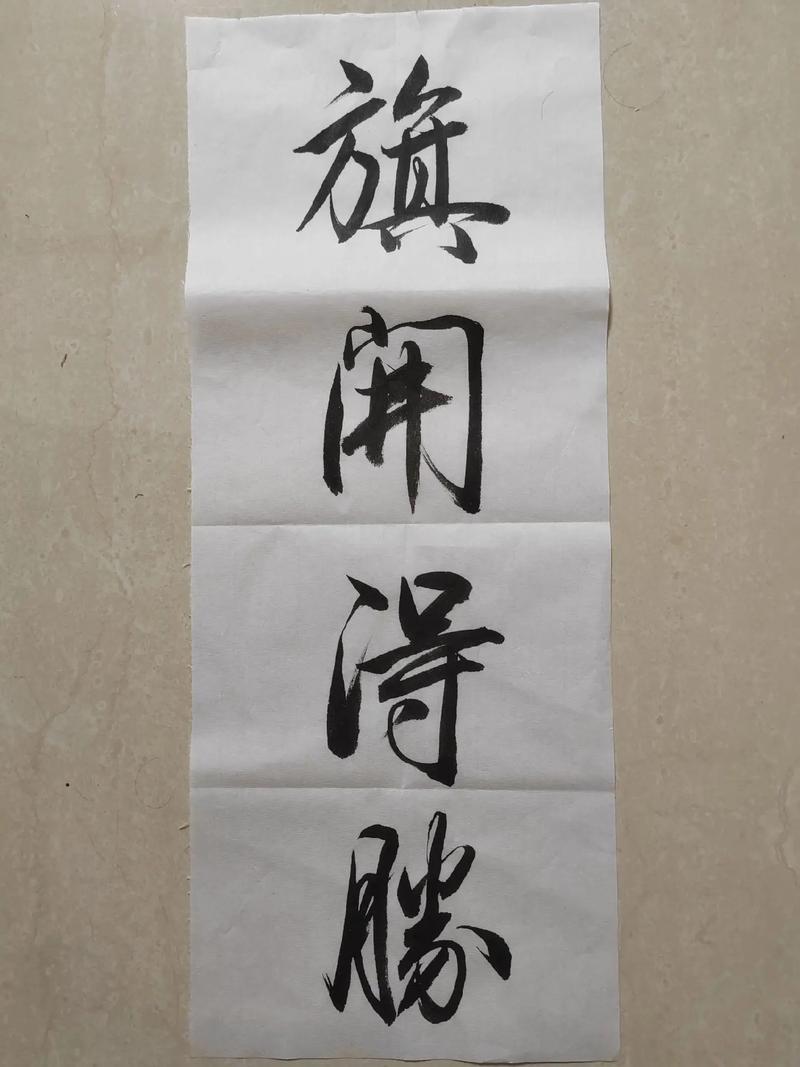 旗開得勝